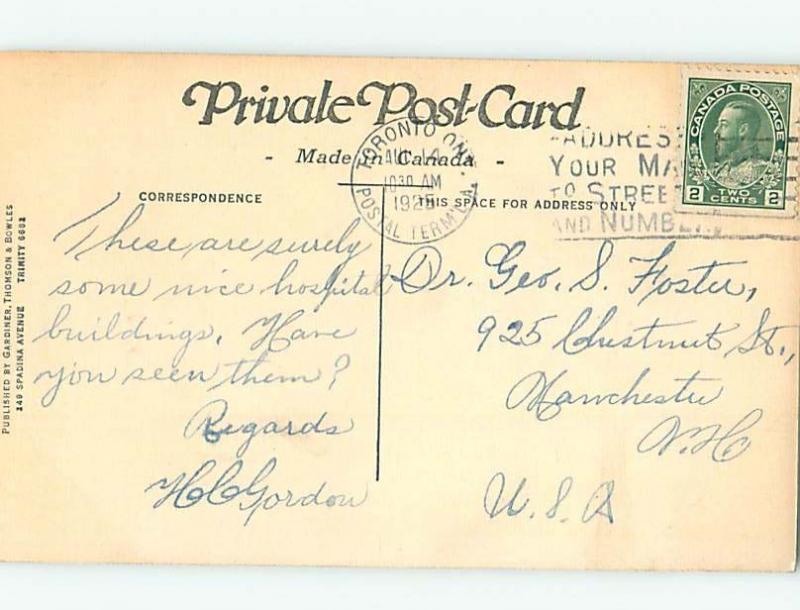 Private Post-Card
- Made in Canada -
CORRESPONDENCE
THIS SPACE FOR ADDRESS ONLY
These are surely
some nice hospital
buildings. Have
you seen them?
Regards
H C Gordon
Dr. Geo. S. Foster,
925 Chestnut St.,
Manchester
N. H.
U. S. A
PUBLISHED BY GARDINER, THOMSON & BOWLES
149 SPADINA AVENUE TRINITY 6682
TORONTO ONT
10 30 AM
POSTAL TERMINAL A
ADDRES
YOUR MA
TO STREE
AND NUMBE
CANADA POSTAGE
2 TWO CENTS 2